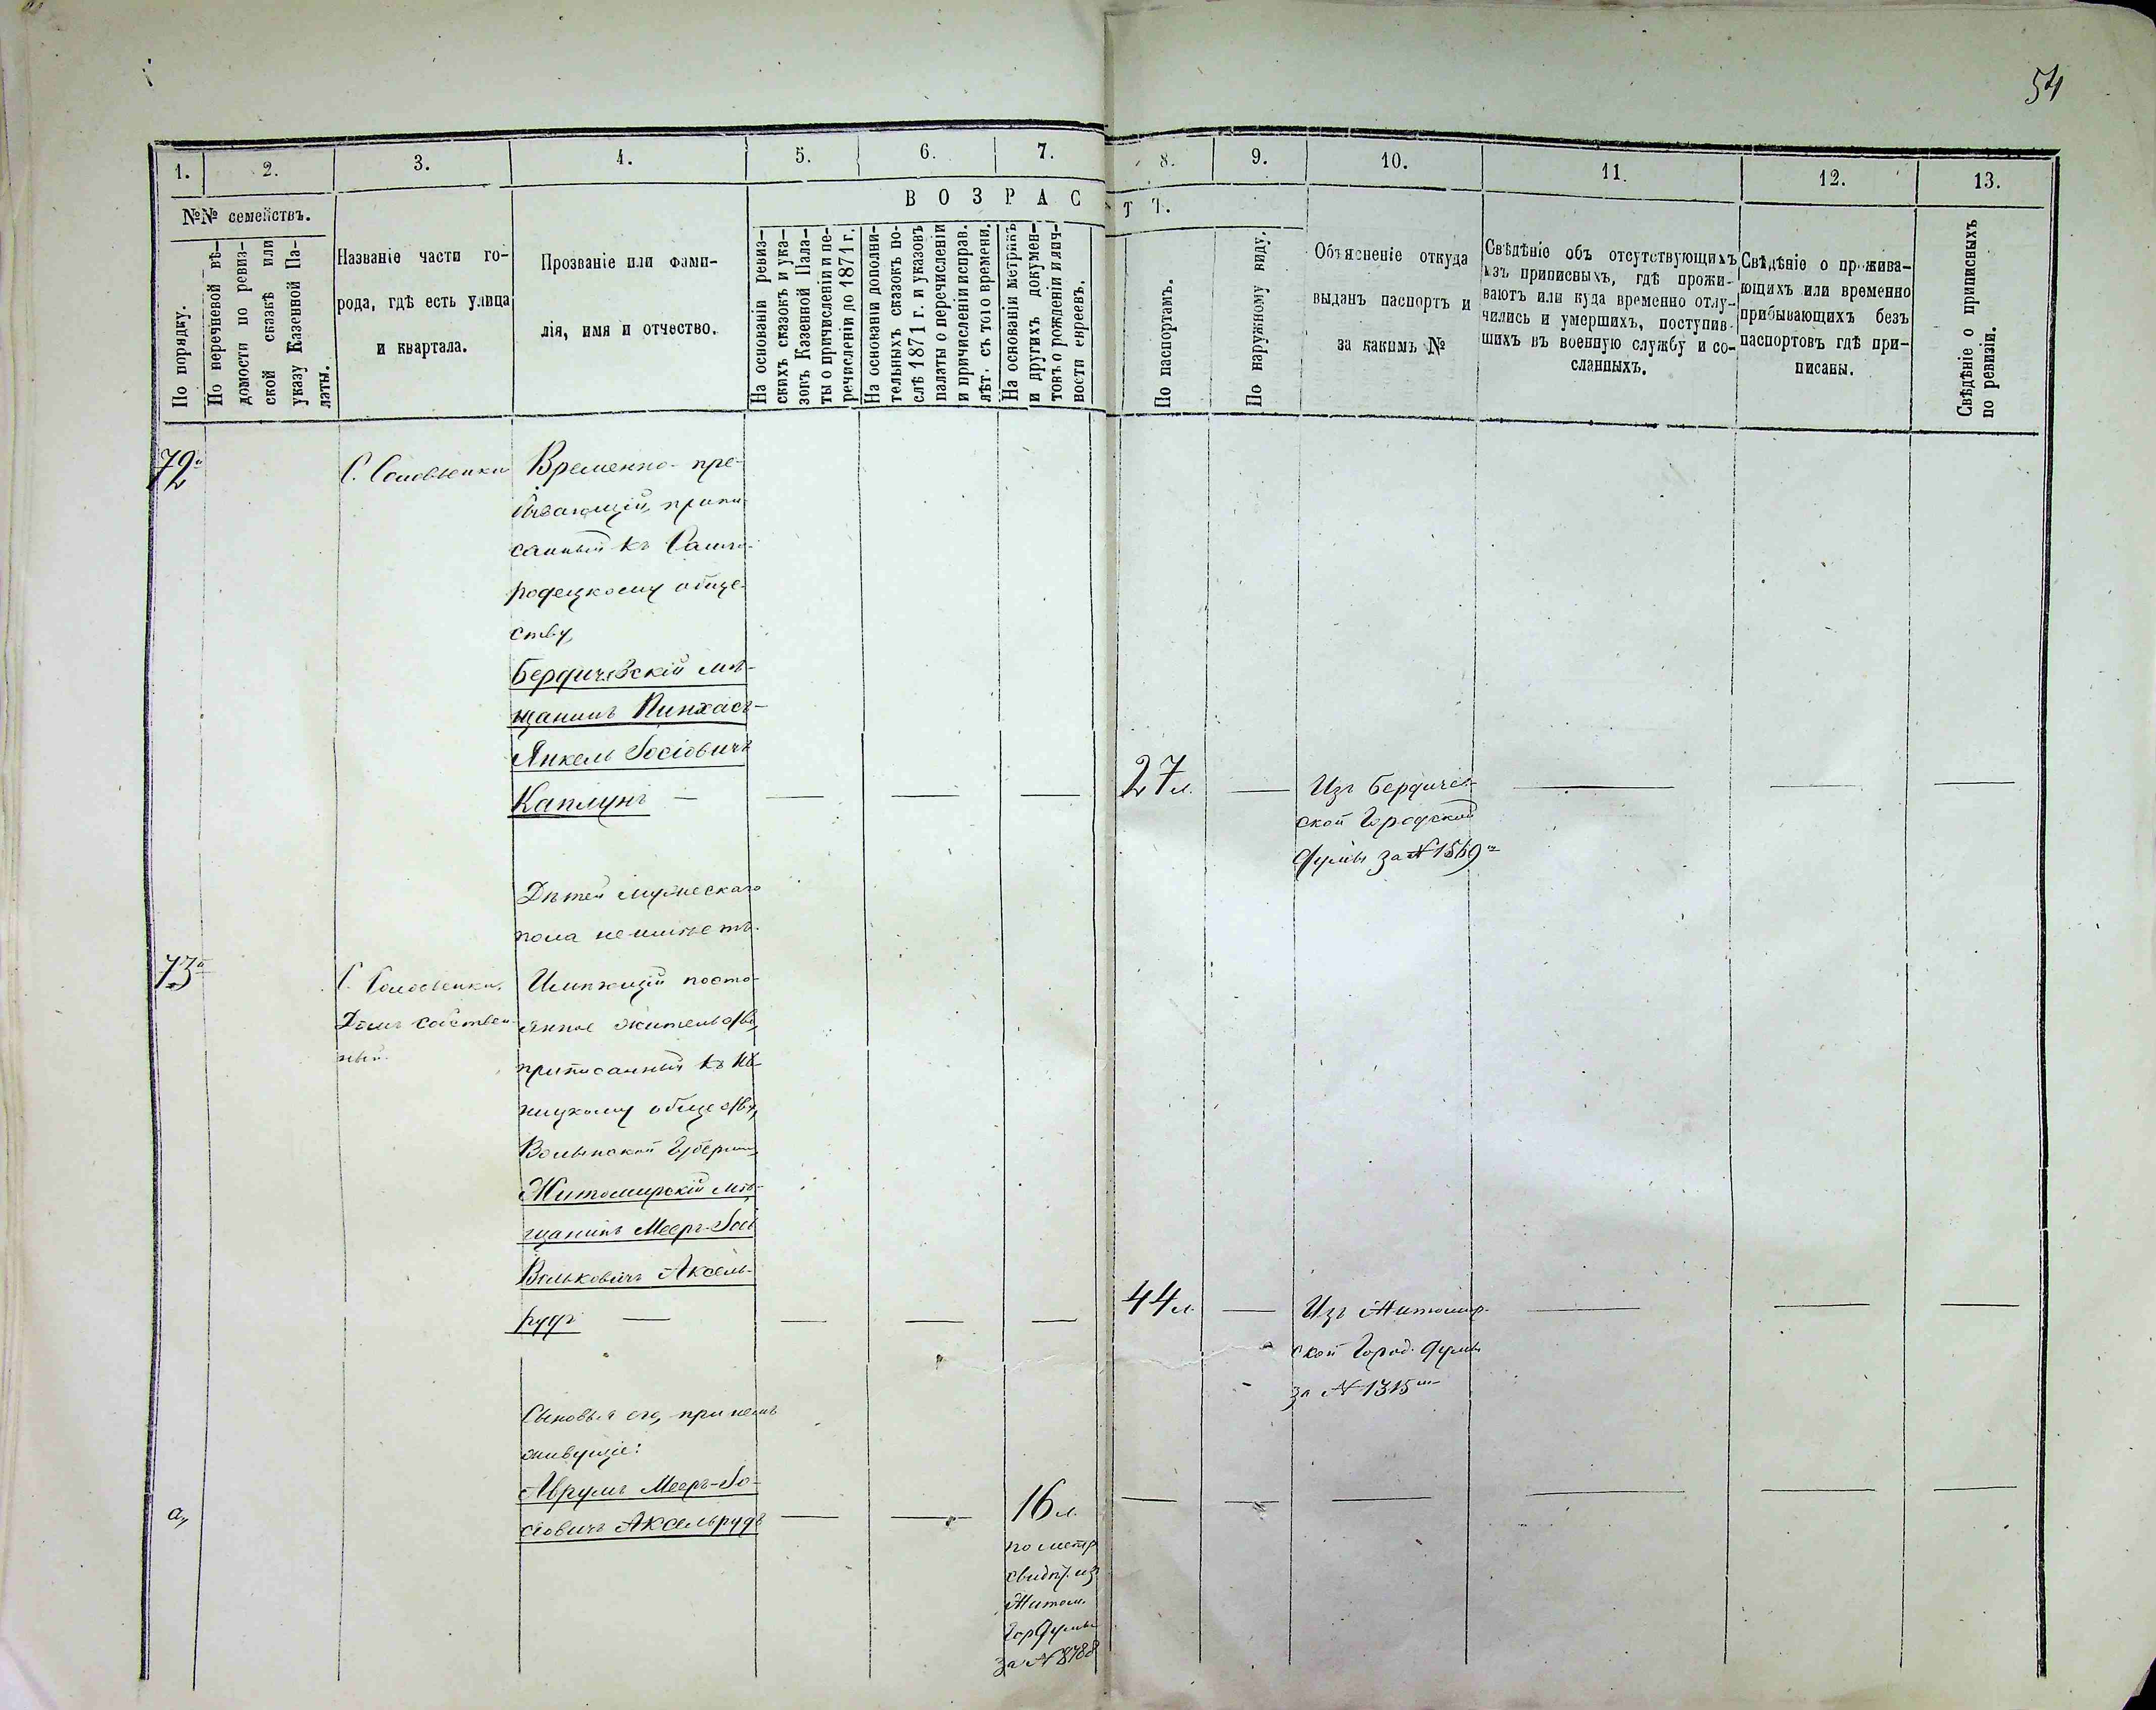 54
1. 2. 3. 4. 5. 6. 7. 8. 9. 10. 11. 12. 13.
№№ семействъ.
ВОЗРАСТТ.
По порядку.
По перечневой вѣ-
домости по ревиз-
ской сказкѣ или
указу Казенной Па-
латы.
Названіе части го-
рода, гдѣ есть улица
и квартала.
Прозваніе или фами-
лія, имя и отчество.
На основаніи ревиз-
скихъ сказокъ и ука-
зовъ Казенной Пала-
ты о причисленіи и пе-
речисленіи до 1871 г.
На основаніи дополни-
тельныхъ сказокъ по-
слѣ 1871 г. и указовъ
палаты о перечисленіи
и причисленіи исправ.
лѣт. съ того времени.
На основаніи метрикъ
и другихъ докумен-
товъ о рожденіи и лич-
ности евреевъ.
По паспортамъ.
По наружному виду.
Объясненіе откуда
выданъ паспортъ и
за какимъ №
Свѣдѣніе объ отсутствующихъ
изъ приписныхъ, гдѣ прожи-
ваютъ или куда временно отлу-
чились и умершихъ, поступив-
шихъ въ военную службу и со-
сланныхъ.
Свѣдѣніе о прожива-
ющихъ или временно
прибывающихъ безъ
паспортовъ гдѣ при-
писаны.
Свѣдѣніе о приписныхъ
по ревизіи.
72й
С.
Временно- пре-
бывающій, припи
санный къ Самго-
родецкому обще-
ству,
Бердичевскій мѣ-
щанинъ Пинхасъ-
Янкель Іосіовичъ
Каплунъ —
27 л.
Изъ Бердичев-
ской Городской
Думы за №
Дѣтей мужескаго
пола не имѣетъ.
73й
С.
Домъ собствен-
ный.
Имѣющій посто-
янное жительство,
приписанный къ
обществу,
Волынской Губерніи,
Житомирскій мѣ-
щанинъ Мееръ-Іось
Вольковичъ Аксель-
рудъ —
44 л.
Изъ Житомир-
ской Город. Думы
за № 1315м
Сыновья его, при немъ
живущіе:
а,
Аврумъ Мееръ-Іо-
сіовичъ Аксельрудъ
16 л.
по метр
свидѣт. из
Житом.
Гор Думы
за № 8788